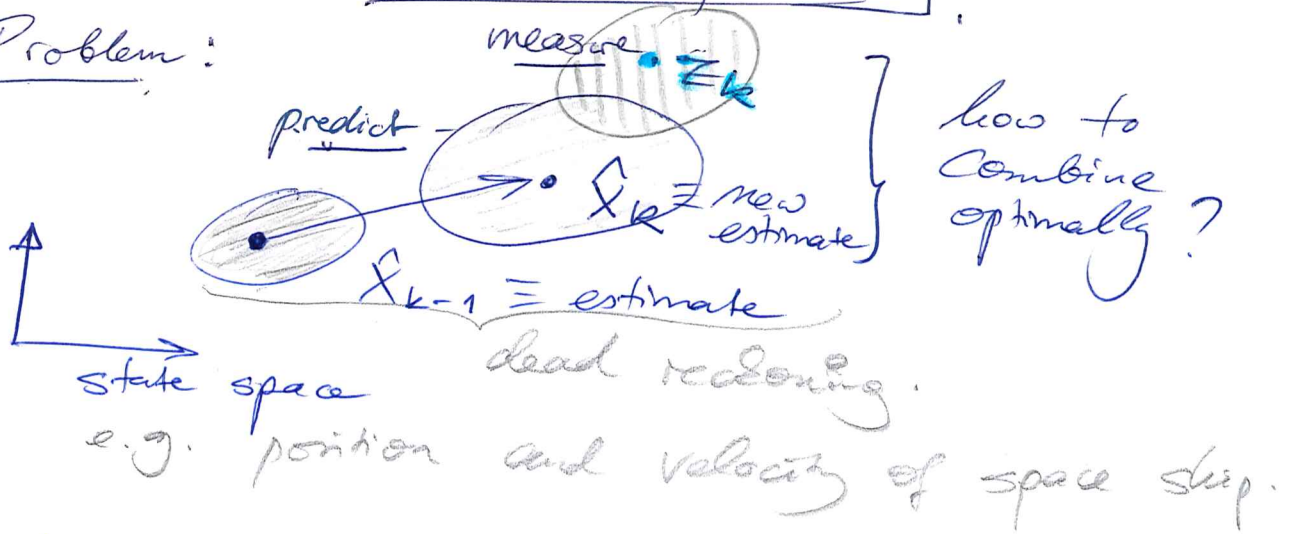 Problem:
measure
z_k
predict
x̂_k ≡ new
estimate
how to
combine
optimally?
x̂_k-1 ≡ estimate
dead reckoning.
state space
e.g. position and velocity of space ship.